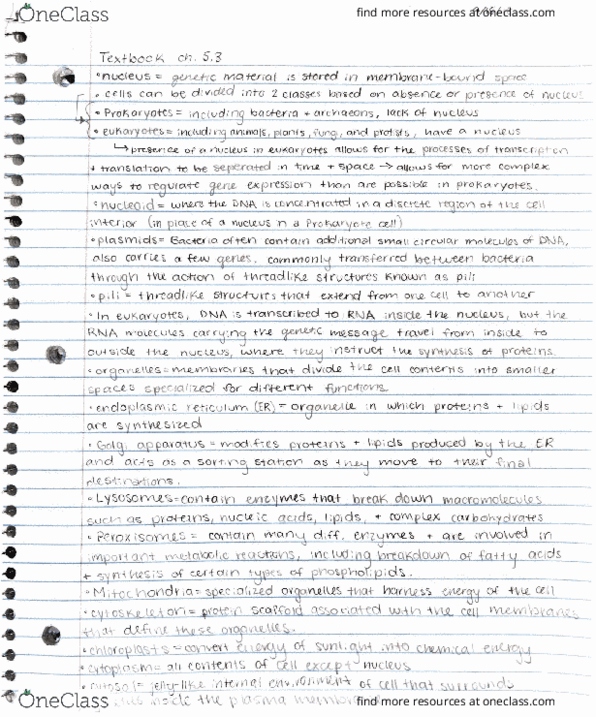 OneClass
find more resources at oneclass.com
Textbook ch. 5.3
• nucleus = genetic material is stored in membrane-bound space
• cells can be divided into 2 classes based on absence or presence of nucleus
• Prokaryotes = including bacteria + archaeons, lack of nucleus
• eukaryotes = including animals, plants, fungi, and protists, have a nucleus
↳ presence of a nucleus in eukaryotes allows for the processes of transcription
+ translation to be seperated in time + space → allows for more complex
ways to regulate gene expression than are possible in prokaryotes.
• nucleoid = where the DNA is concentrated in a discrete region of the cell
interior (in place of a nucleus in a Prokaryote cell)
• plasmids = Bacteria often contain additional small circular molecules of DNA,
also carries a few genes. commonly transferred between bacteria
through the action of threadlike structures known as pili
• pili = threadlike structures that extend from one cell to another
• In eukaryotes, DNA is transcribed to RNA inside the nucleus, but the
RNA molecules carrying the genetic message travel from inside to
outside the nucleus, where they instruct the synthesis of proteins.
• organelles = membranes that divide the cell contents into smaller
spaces specialized for different functions
• endoplasmic reticulum (ER) = organelle in which proteins + lipids
are synthesized
• Golgi apparatus = modifies proteins + lipids produced by the ER
and acts as a sorting station as they move to their final
destinations.
• Lysosomes = contain enzymes that break down macromolecules
such as proteins, nucleic acids, lipids, + complex carbohydrates
• Peroxisomes = contain many diff. enzymes + are involved in
important metabolic reactions, including breakdown of fatty acids
+ synthesis of certain types of phospholipids.
• Mitochondria = specialized organelles that harness energy of the cell
• cytoskeleton = protein scaffold associated with the cell membranes
that define these organelles.
• chloroplasts = convert energy of sunlight into chemical energy
• cytoplasm = all contents of cell except nucleus
• cytosol = jelly-like internal environment of cell that surrounds
inside the plasma membrane
OneClass
find more resources at oneclass.com